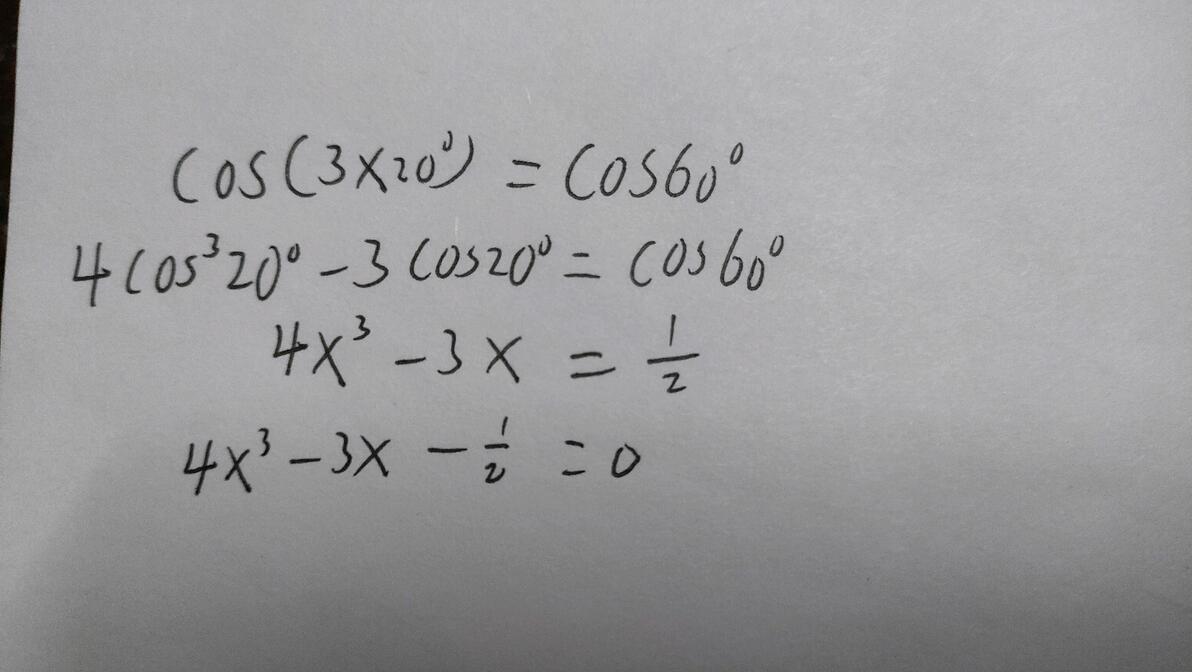 cos(3×20°) = cos60°
4cos³20° - 3cos20° = cos60°
4x³ - 3x = 1/2
4x³ - 3x - 1/2 = 0